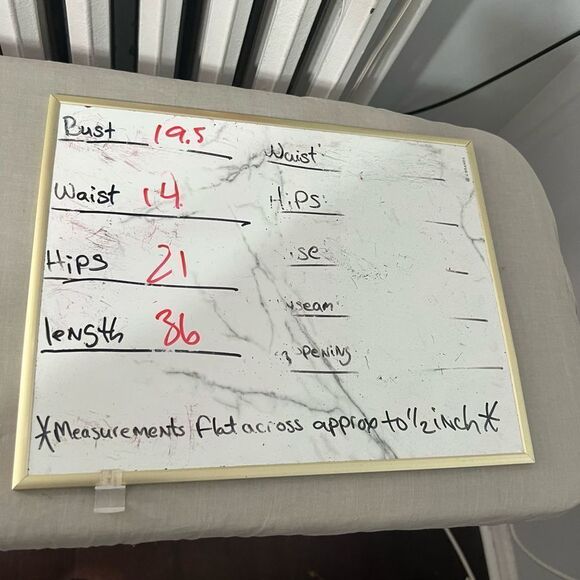 Bust 19.5
Waist 14
Hips 21
length 36
Waist:
Hips:
*Measurements flat across approx to 1/2 inch*